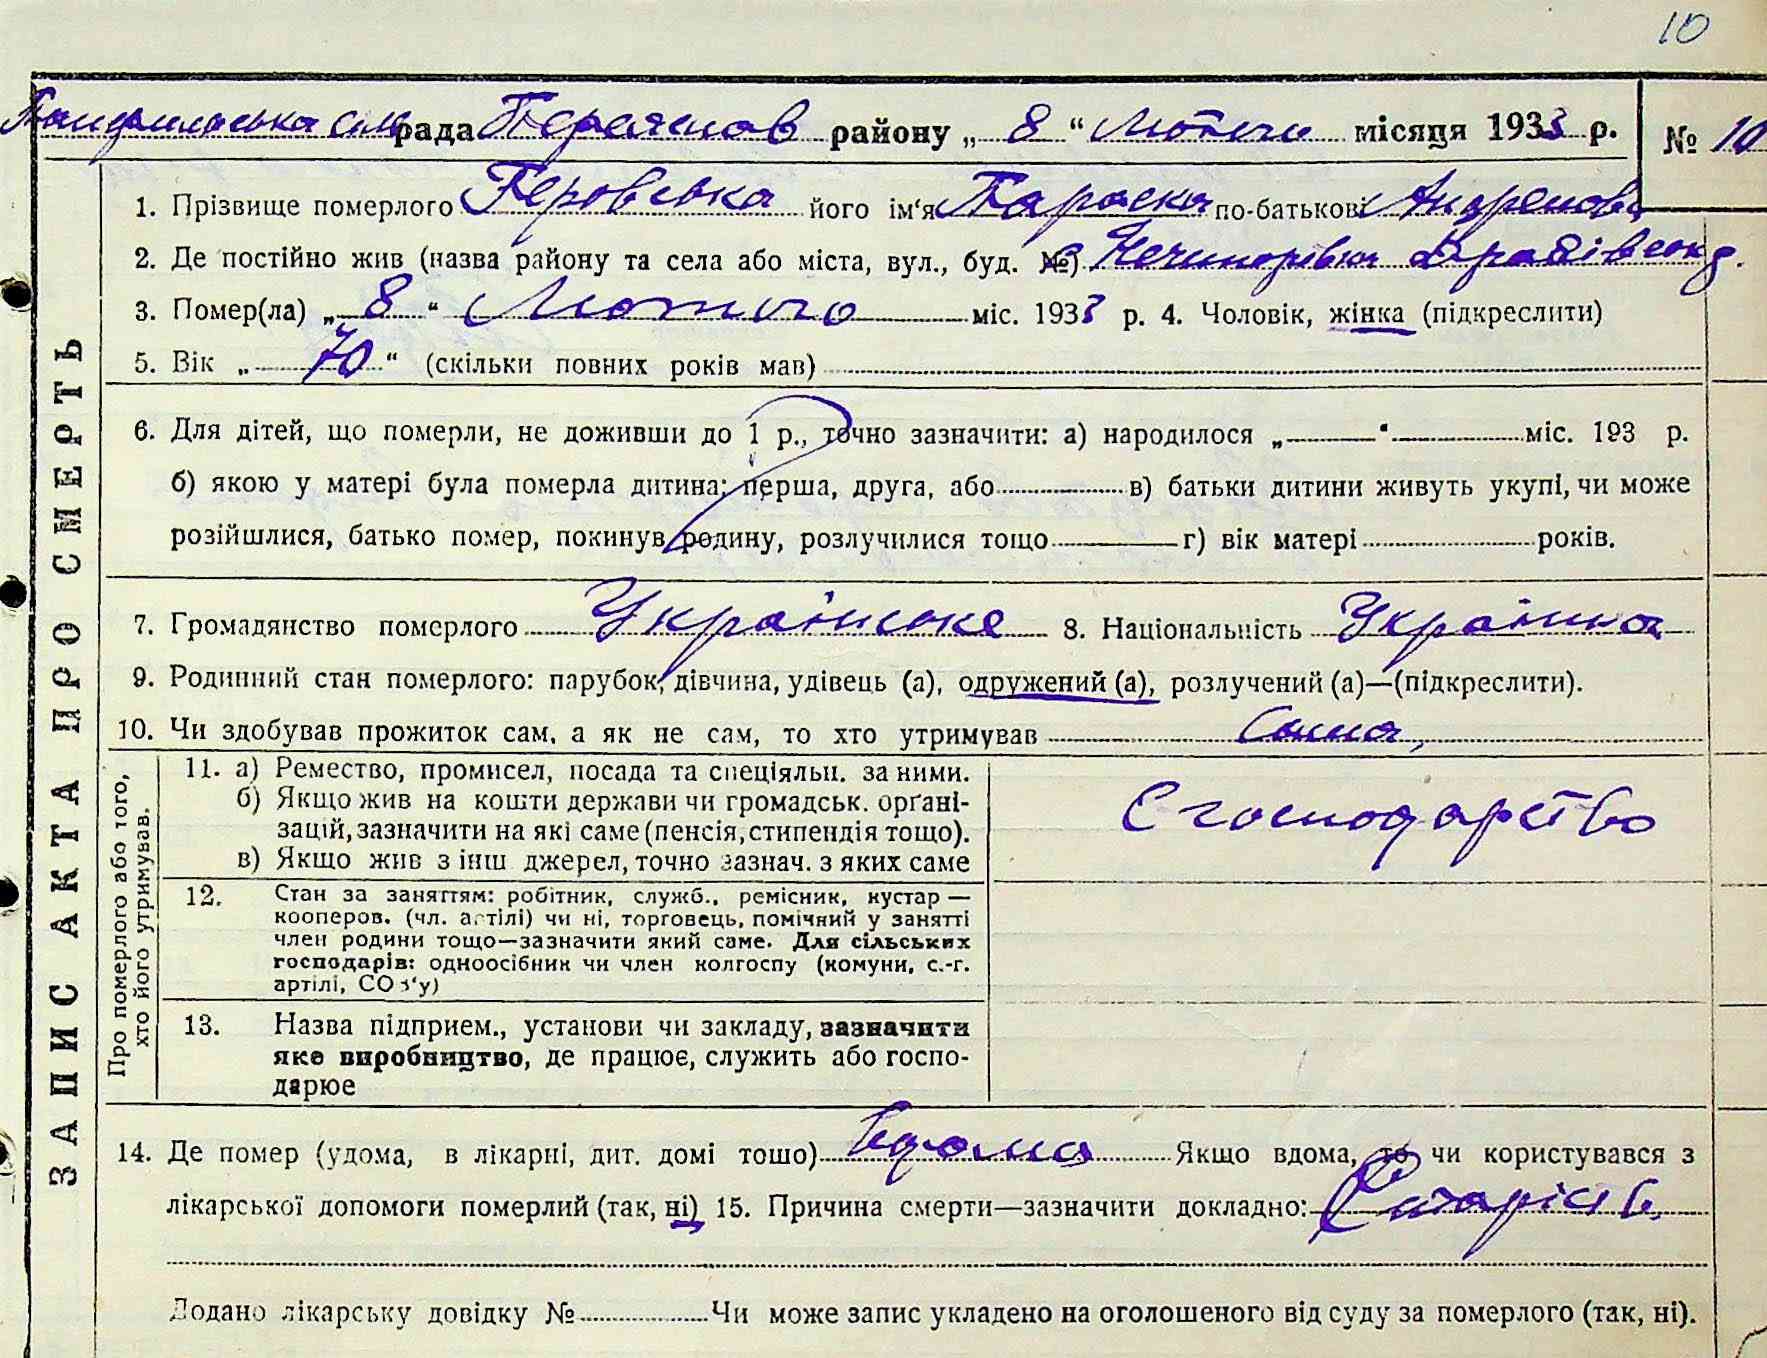 10
рада району „ 8 “ Лютого місяця 1933 р. № 10
ЗАПИС АКТА ПРО СМЕРТЬ
1. Прізвище померлого його ім‘я Параска по-батькові Андреєва
2. Де постійно жив (назва району та села або міста, вул., буд. №)
3. Помер(ла) „ 8 “ Лютого міс. 1933 р. 4. Чоловік, жінка (підкреслити)
5. Вік „ 70 “ (скільки повних років мав)
6. Для дітей, що померли, не доживши до 1 р., точно зазначити: а) народилося „ “ міс. 193 р.
б) якою у матері була померла дитина: перша, друга, або в) батьки дитини живуть укупі, чи може
розійшлися, батько помер, покинув родину, розлучилися тощо г) вік матері років.
7. Громадянство померлого Українське 8. Національність Українка
9. Родинний стан померлого: парубок, дівчина, удівець (а), одружений (а), розлучений (а)—(підкреслити).
10. Чи здобував прожиток сам, а як не сам, то хто утримував Сама,
Про померлого або того,
хто його утримував.
11. а) Ремество, промисел, посада та спеціяльн. за ними.
б) Якщо жив на кошти держави чи громадськ. орґані-
зацій, зазначити на які саме (пенсія, стипендія тощо).
в) Якщо жив з інш джерел, точно зазнач. з яких саме
С господарство
12. Стан за заняттям: робітник, служб., ремісник, кустар —
кооперов. (чл. артілі) чи ні, торговець, помічний у занятті
член родини тощо—зазначити який саме. Для сільських
господарів: одноосібник чи член колгоспу (комуни, с.-г.
артілі, СОЗ‘у)
13. Назва підприєм., установи чи закладу, зазначити
яке виробництво, де працює, служить або госпо-
дарює
14. Де помер (удома, в лікарні, дит. домі тощо) Вдома Якщо вдома, то чи користувався з
лікарської допомоги померлий (так, ні) 15. Причина смерти—зазначити докладно: Старість
Додано лікарську довідку № Чи може запис укладено на оголошеного від суду за померлого (так, ні).